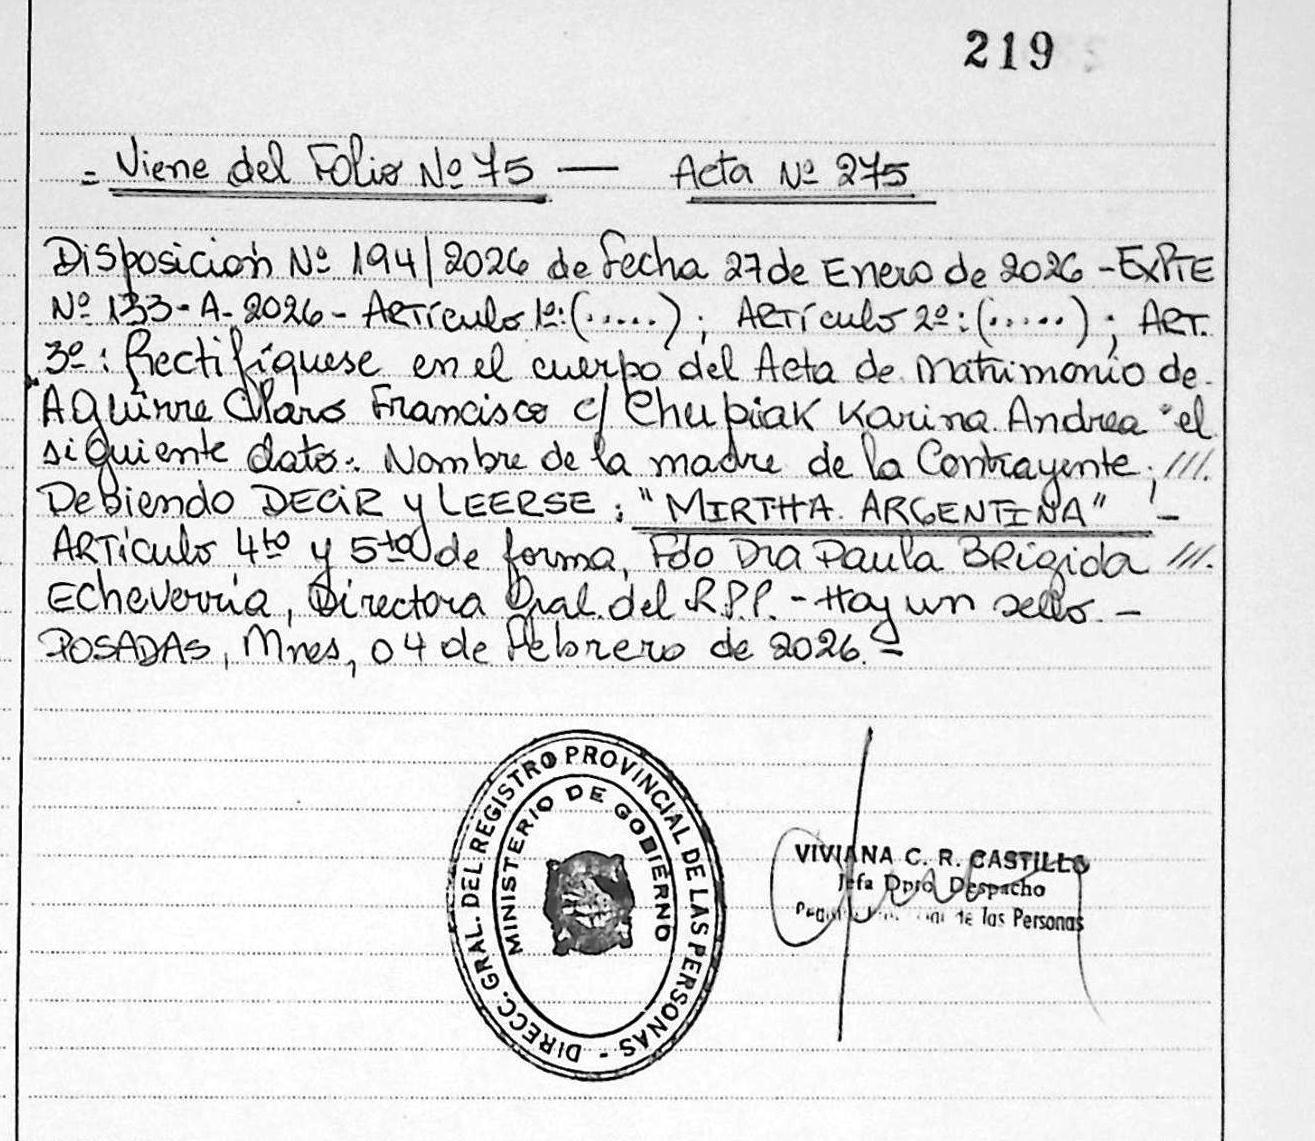 219
= Viene del Folio Nº 75 — Acta Nº 275
Disposición Nº 194/2026 de fecha 27 de Enero de 2026 - EXPTE
Nº 133-A-2026 - Artículo 1º: (.....); Artículo 2º: (.....); ART.
3º: Rectifíquese en el cuerpo del Acta de Matrimonio de
Aguirre Claro Francisco c/ Chupiak Karina Andrea el
siguiente dato: Nombre de la madre de la Contrayente, ///.
Debiendo DECIR y LEERSE: "MIRTHA ARGENTINA" -
Artículo 4to y 5to de forma, Fdo Dra Paula Brigida ///.
Echeverria, Directora Gral. del R.P.P. - Hay un sello. -
POSADAS, Mnes, 04 de Febrero de 2026. =
DIRECC. GRAL. DEL REGISTRO PROVINCIAL DE LAS PERSONAS -
MINISTERIO DE GOBIERNO
VIVIANA C. R. CASTILLO
Jefa Dpto Despacho
de las Personas